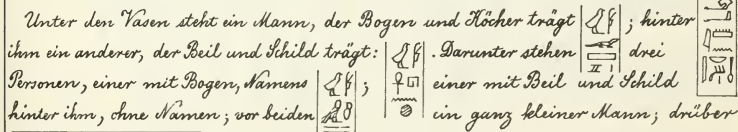 Unter den Vasen steht ein Mann, der Bogen und Köcher trägt ; hinter
ihm ein anderer, der Beil und Schild trägt: . Darunter stehen drei
Personen, einer mit Bogen, Namens ; einer mit Beil und Schild
hinter ihm, ohne Namen; vor beiden ein ganz kleiner Mann; drüber